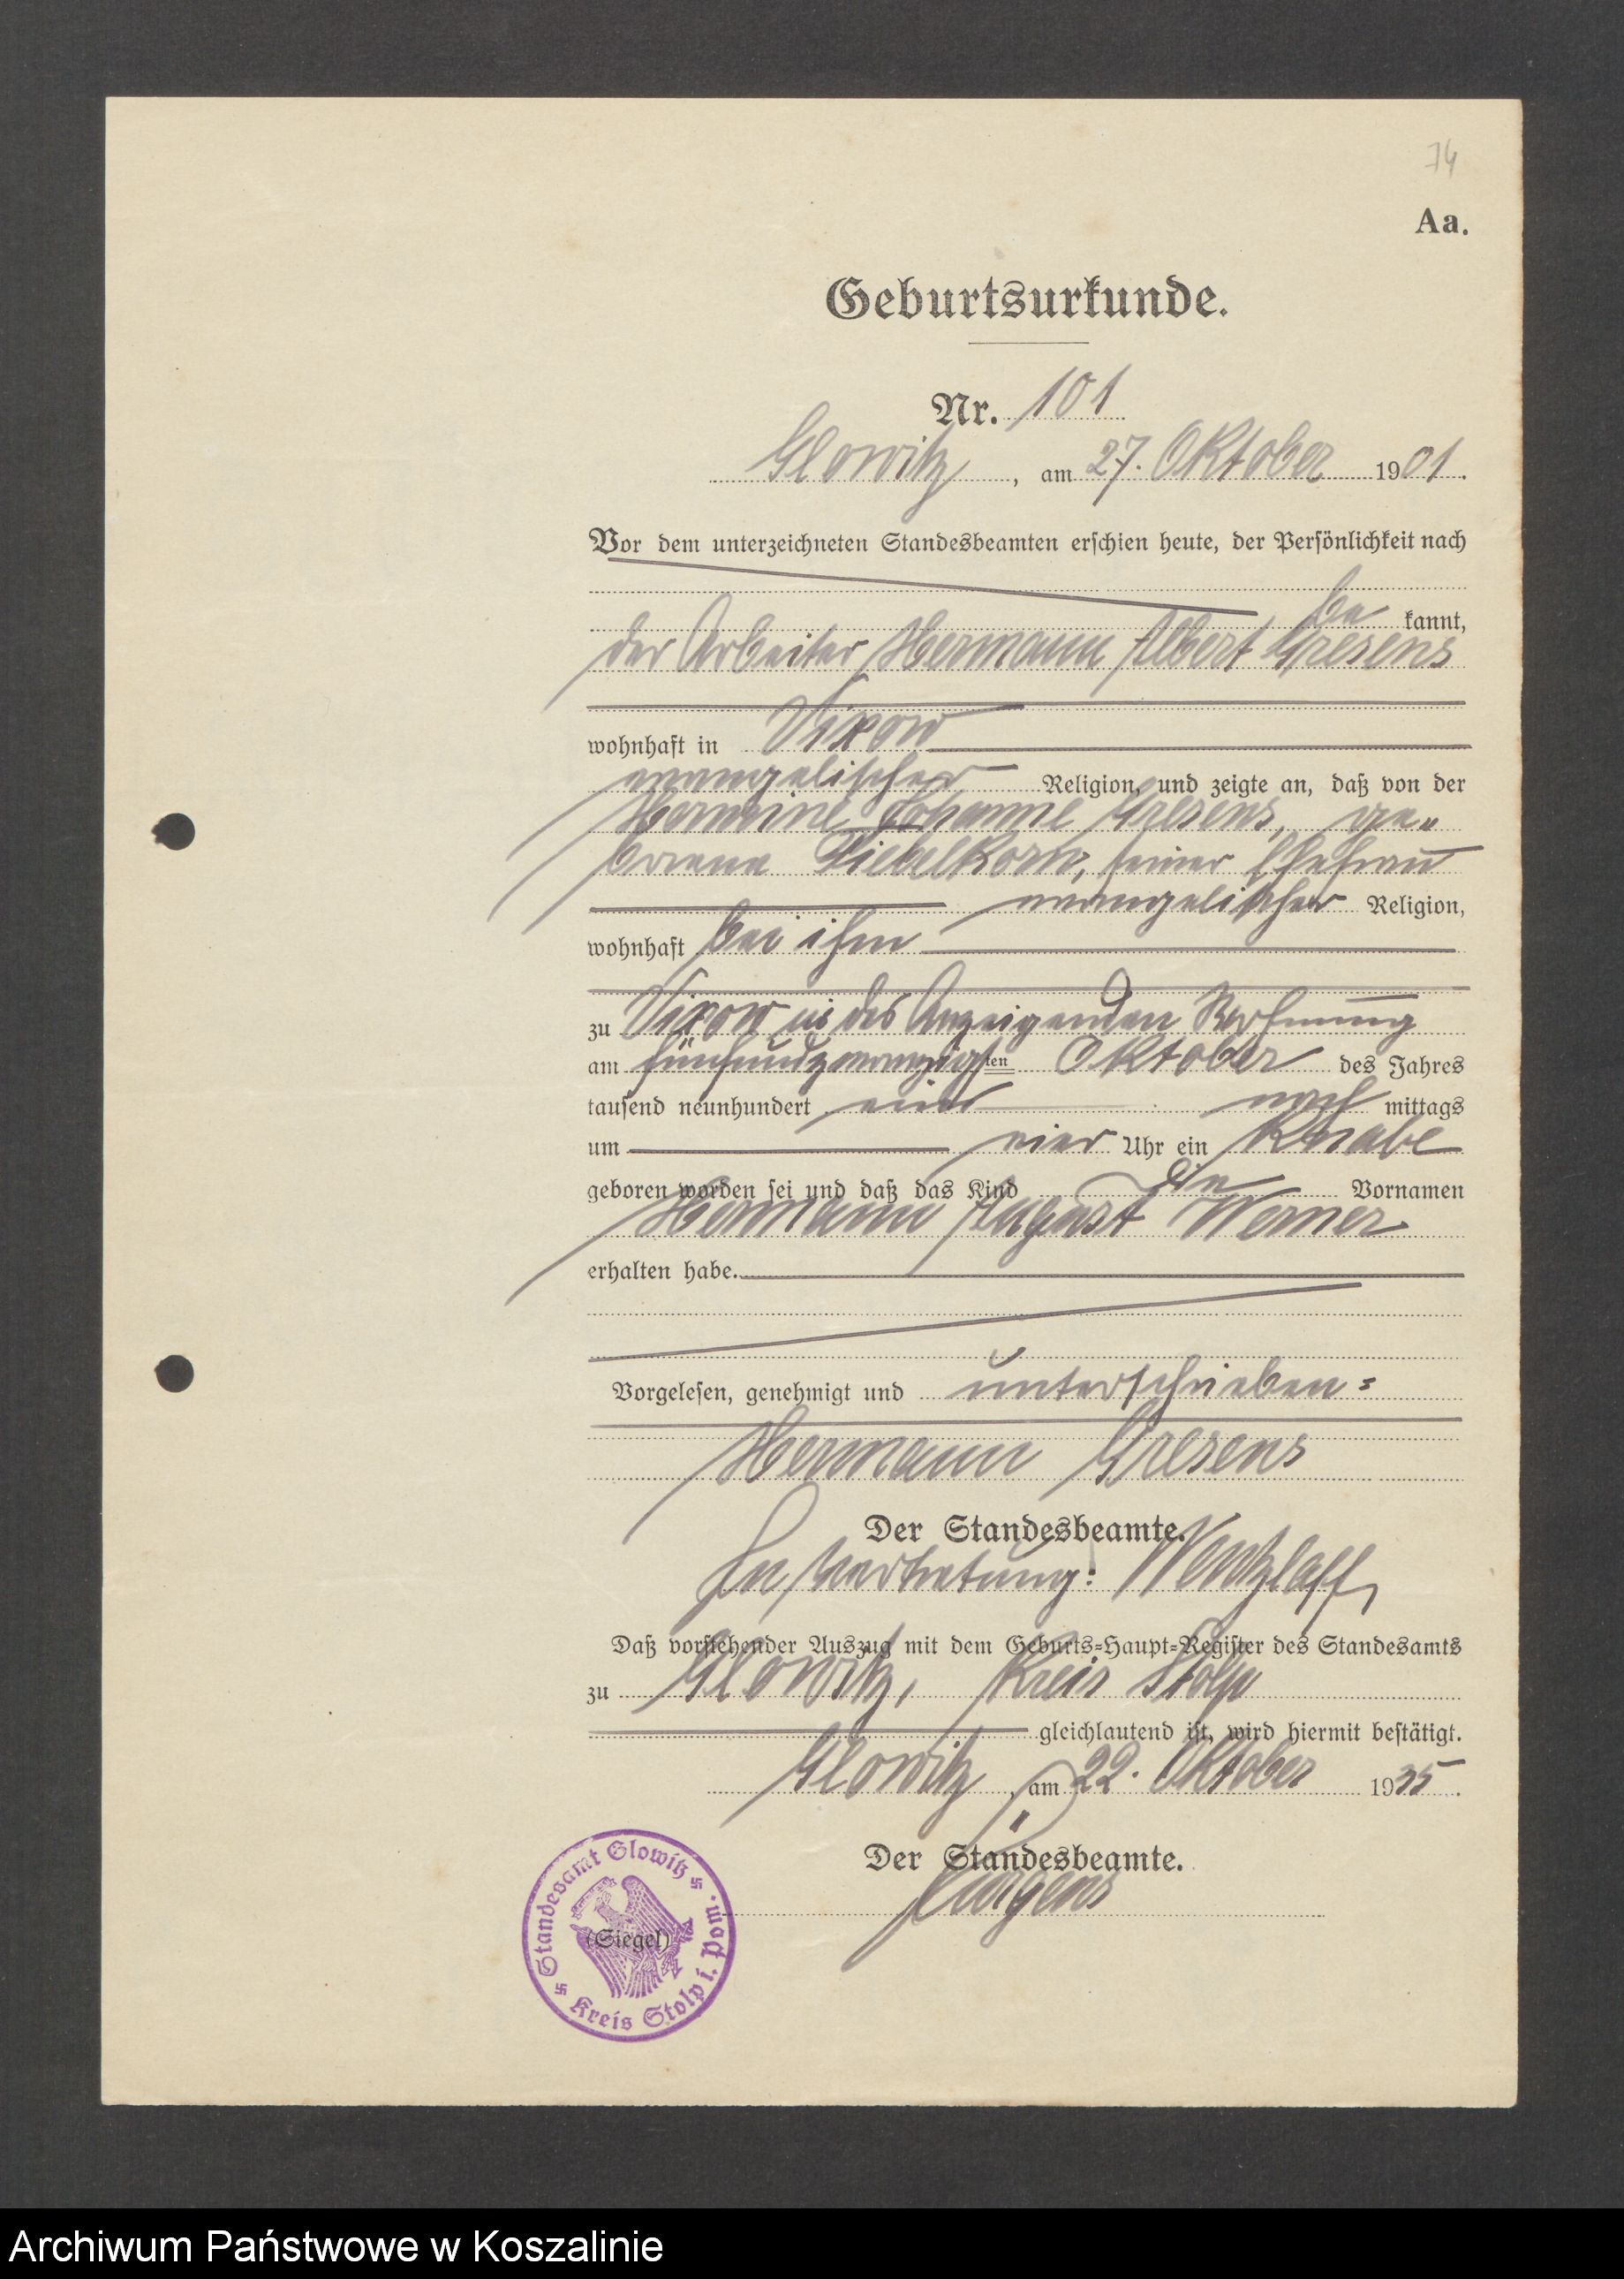 74
Aa.
Geburtsurkunde.
Nr. 101
Glowitz, am 27. Oktober 1901.
Vor dem unterzeichneten Standesbeamten erschien heute, der Persönlichkeit nach
be kannt,
der Arbeiter Hermann Albert Gresens
wohnhaft in Vixow
evangelischer Religion, und zeigte an, daß von der
Hermine Johanne Gresens, ge„
borene Fiebelkorn, seiner Ehefrau
evangelischer Religion,
wohnhaft bei ihm
zu Vixow in des Anzeigenden Wohnung
am fünfundzwanzigsten Oktober des Jahres
tausend neunhundert eins nach mittags
um vier Uhr ein Knabe
geboren worden sei und daß das Kind die Vornamen
Hermann August Werner
erhalten habe.
Vorgelesen, genehmigt und unterschrieben=
Hermann Gresens
Der Standesbeamte.
In Vertretung: Wentzlaff,
Daß vorstehender Auszug mit dem Geburts=Haupt=Register des Standesamts
zu Glowitz, Kreis Stolp
gleichlautend ist, wird hiermit bestätigt.
Glowitz, am 22. Oktober 1935.
Der Standesbeamte.
(Siegel)
Standesamt Glowitz
Kreis Stolp i. Pom.
Archiwum Państwowe w Koszalinie